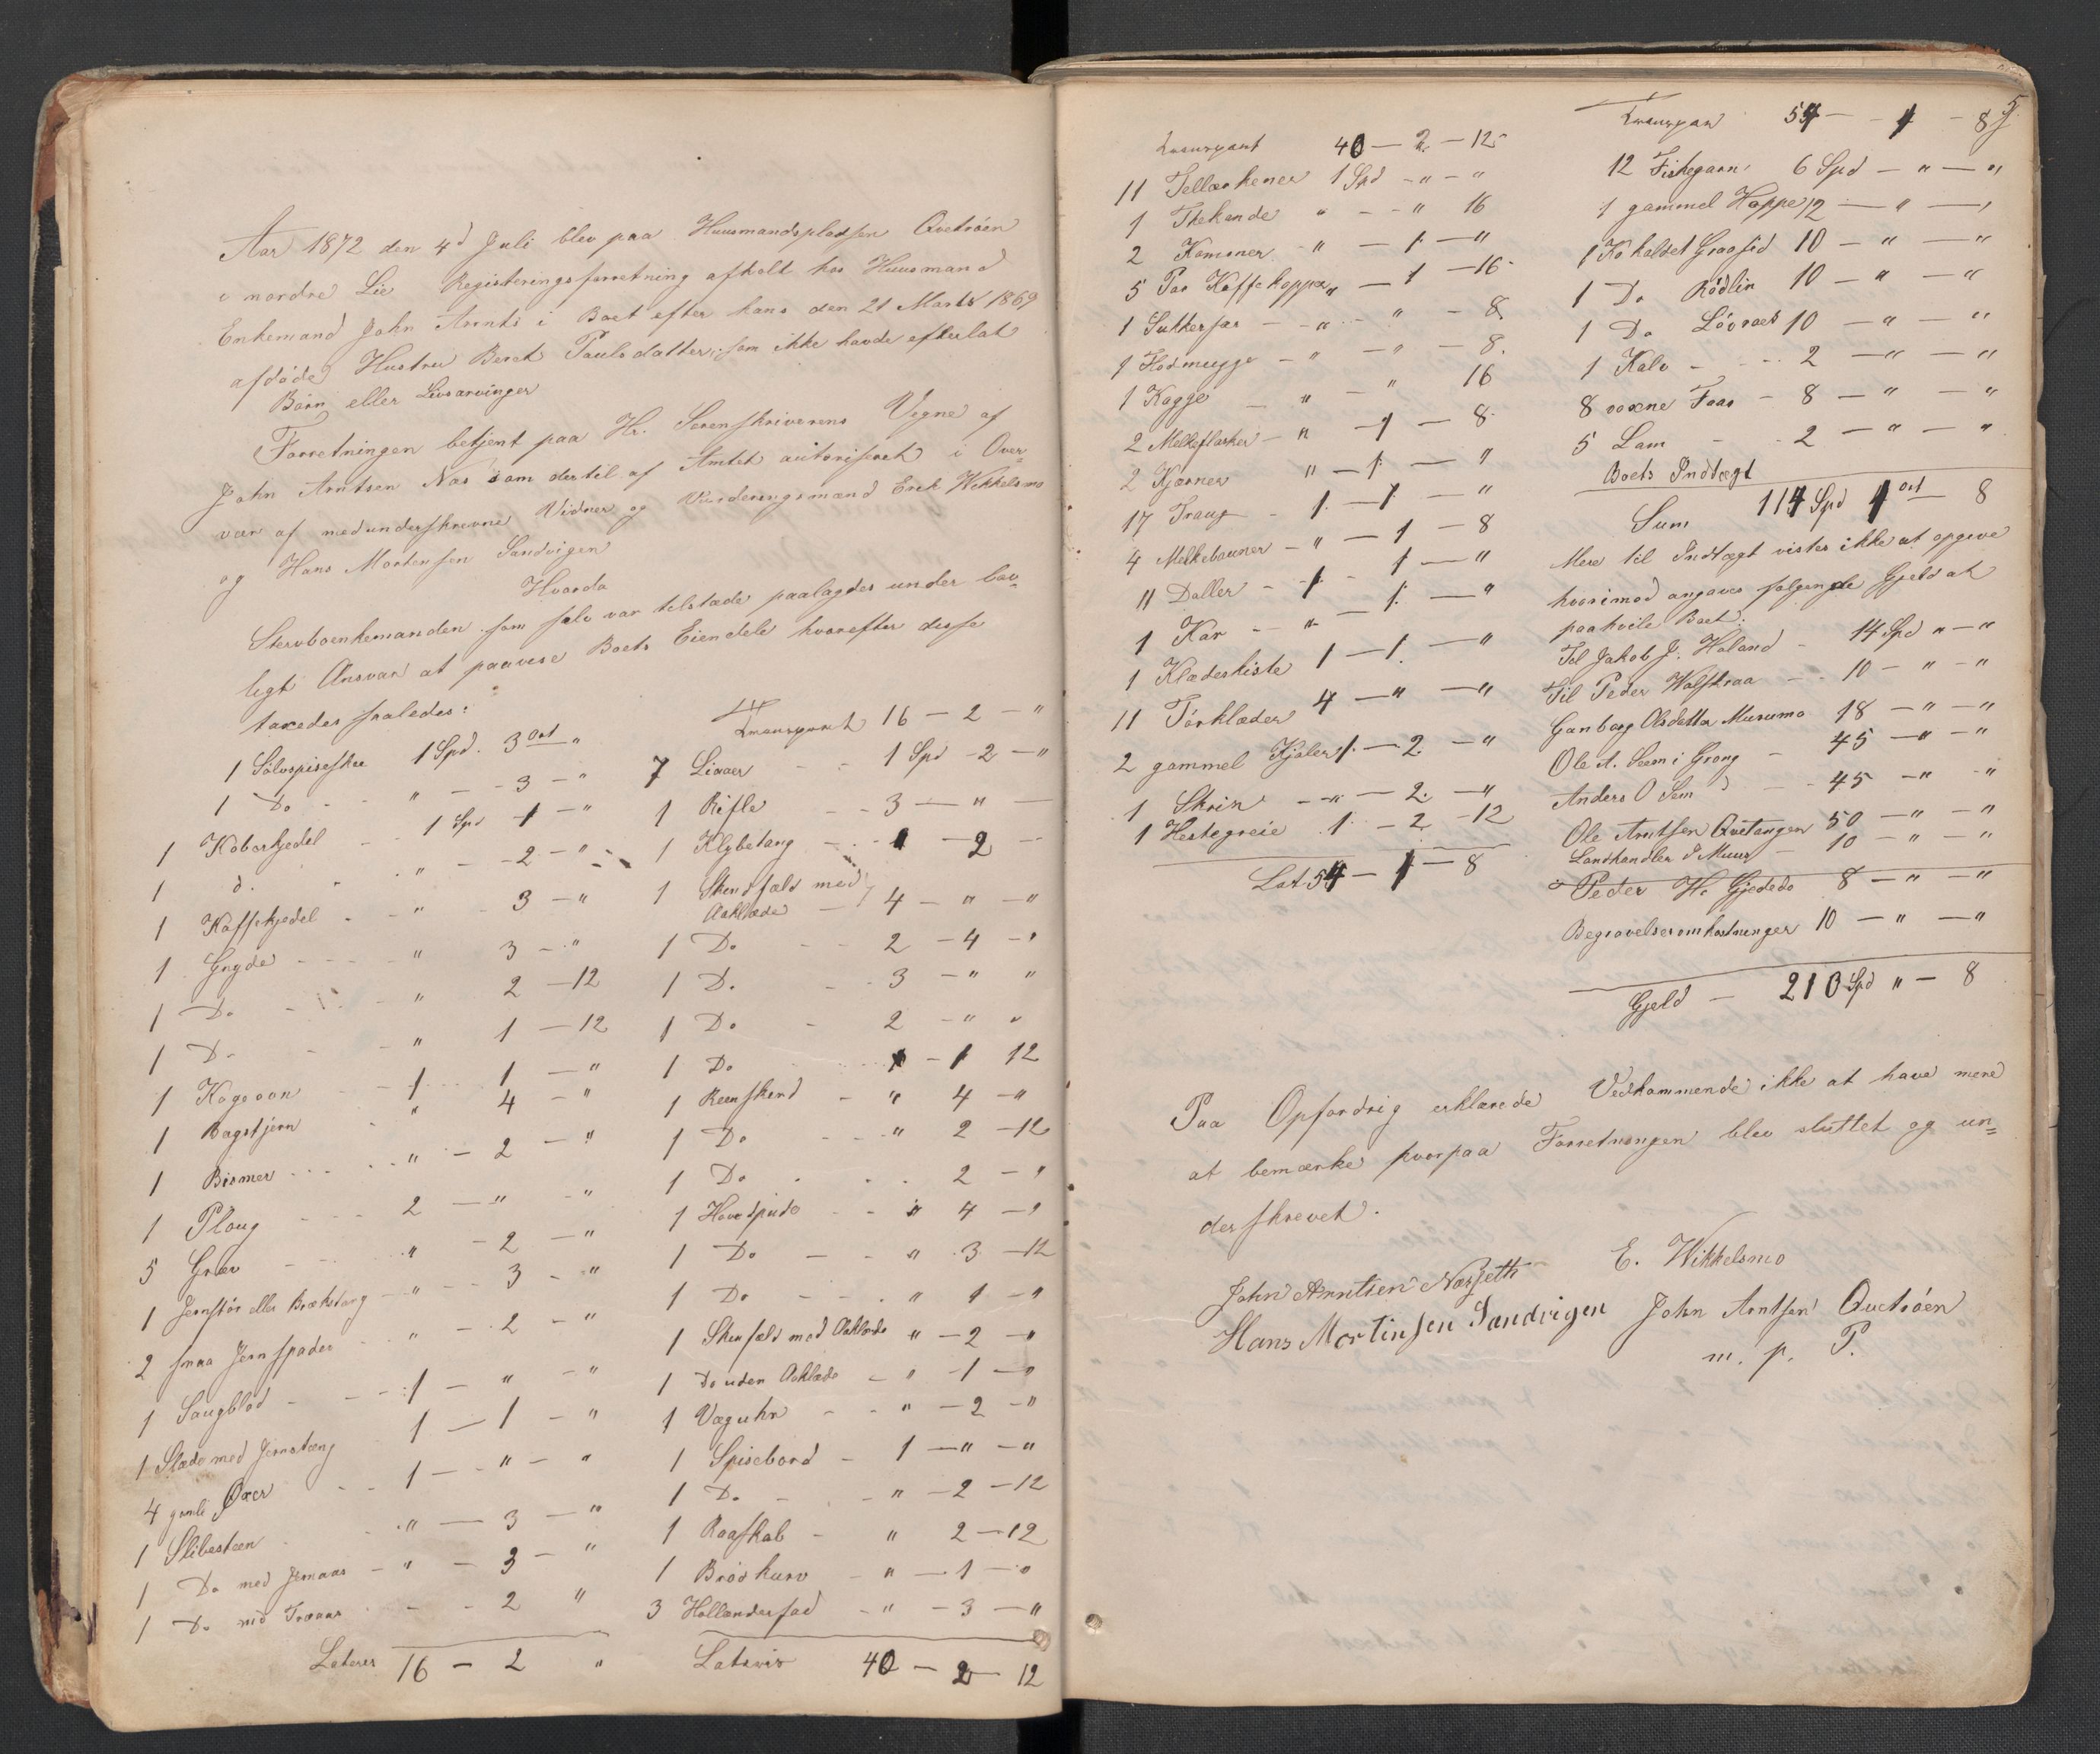 Aar 1872 den 4d Juli blev paa Huusmandspladsen Qvetröen
i nordre Lie Registeringsforretning afholt hos Huusmand
Enkemand John Arnts i Boet efter hans den 21 Marts 1869
afdöde Hustru Beret Paulsdatter, som ikke havde efterlat
Börn eller Livsarvinger
Forretningen betjent paa Hr. Sorenskriverens Vegne af
John Arntsen Næs som dertil af Amtet autoriseret i Over-
vær af medunderskrevne Vidner og Vurderingsmænd Erik Wikkelsmo
og Hans Mortensen Sandvigen
Hvorda
Stervboenkemanden som selv var tilstæde paalagdes under lov-
ligt Ansvar at paavise Boets Eiendele hvorefter disse
taxedes saaledes:
1 Sölvspiseskee 1 Spd. 3 ort "
1 Do - - " - 3 - "
1 Koberkjedel - 1 Spd 1 - "
1 d. - " - 2 - "
1 Kaffekjedel - " - 3 - "
1 Gryde - - " 3 - "
1 Do - " 2 - 12
1 Do - " 1 - 12
1 Kogeoon - 1 1 - "
1 Bagstjern " 4 - "
1 Bismer - - " - 2 - "
1 Ploug - - 2 - " - "
5 Grev - - " - 2 - "
1 Jernstör eller Brækstang - " - 3 - "
2 smaa Jernspader - " - 2 - "
1 Saugblad - - 1 - " - "
1 Slæde med Jernstæng 1 - 1 - "
4 gamle Öxer - - 1 - " - "
1 Slibesten - " - 3 - "
1 Do med Jernaas - " - 3 - "
1 Do med Træaas - - 2 "
Lateres 16 - 2 "
Transport 16 - 2 - "
7 Liaaer - - 1 Spd - 2 - "
1 Rifle - - 3 - " -
1 Klybetang - - 1 - 2 -
1 Skindfæld med
Aaklæde - 4 - " - "
1 Do - - 2 - 4 - "
1 Do - - 3 - " "
1 Do - 2 - " "
1 Do 1 - 1 12
1 Reenskind - " 4 - "
1 Do - - " 2 - 12
1 Do - - 2 - "
1 Hovedpude - - " 4 - "
1 Do - - " 3 - 12
1 Do - - " 1 - "
1 Skinfæld med Aaklæde " - 2 - "
1 Do uden Aaklæde - " - 1 - "
1 Væguhr - - " - 2 - "
1 Spisebord - 1 - " - "
1 Do - - " - 2 - 12
1 Raaskab - " 2 - 12
1 Brödkurv - " - 1 - "
3 Hollænderfad - " - 3 - "
Lateris 40 - 2 - 12
5
Transport 40 - 2 - 12
11 Tellærkener 1 Spd - " - "
1 Thekande " - - " 16
2 Kommer - " - 1 - "
5 Par Kaffekopper " - 1 - 16
1 Sukkerfar - - " - " - 8
1 Flödmugge - " - " - 8.
1 Kagge - " - " 16
2 Melkeflasker - " - 1 - 8
2 Kjærner " - 1 - "
17 Traug - 1 - 1 - "
4 Melkebouner - " - 1 - 8
11 Daller - 1 - 1 - "
1 Kar - - " - 1 - "
1 Klædeskiste 1 - 1 - "
11 Törklæder 4 - " - "
2 gammel Kjoler 1 - 2 - "
1 Skrin - " - 2 - "
1 Hestegreie 1 - 2 - 12
Lat 54 - 1 - 8
Transpor 54 - - 1 - 8
12 Fiskegarn 6 Spd - " - "
1 gammel Hoppe 12 - " - "
1 Ko kaldet Graasid 10 - " - "
1 Do Rödlin 10 - " - "
1 Do Lövros 10 - " - "
1 Kalv - - 2 - " - "
8 voxne Faar - 8 - " - "
5 Lam - - 2 - " - "
Boets Indtægt
Sum 114 Spd 1 ort 8
Mere til Indtægt vistes ikke at opgive
hvorimod angaves følgende Gjeld at
paahvile Boet:
Til Jakob J. Holand - 14 Spd " - "
Til Peder Walskraa - - 10 - " - "
Gunborg Olsdatter Murumo 18 - " - "
Ole A. Seem i Grong - 45 - " - "
Anders O Sem - - 45 - " - "
Ole Arntsen Qvetangen 50 - " - "
Landhandler P Muus - 10 - " - "
Peder H. Gjedede 8 - " - "
Begravelsesomkostninger 10 - " - "
Gjeld - 210 Spd " - 8
Paa Opfordrig erklærede Vedkommende ikke at have mere
at bemærke hvorpaa Forretningen blev sluttet og un=
derskrevet.
John Arntsen Næssett E. Wikkelsmo
Hans Mortinsen Sandvigen John Arntsen Quetröen
m. p. P.